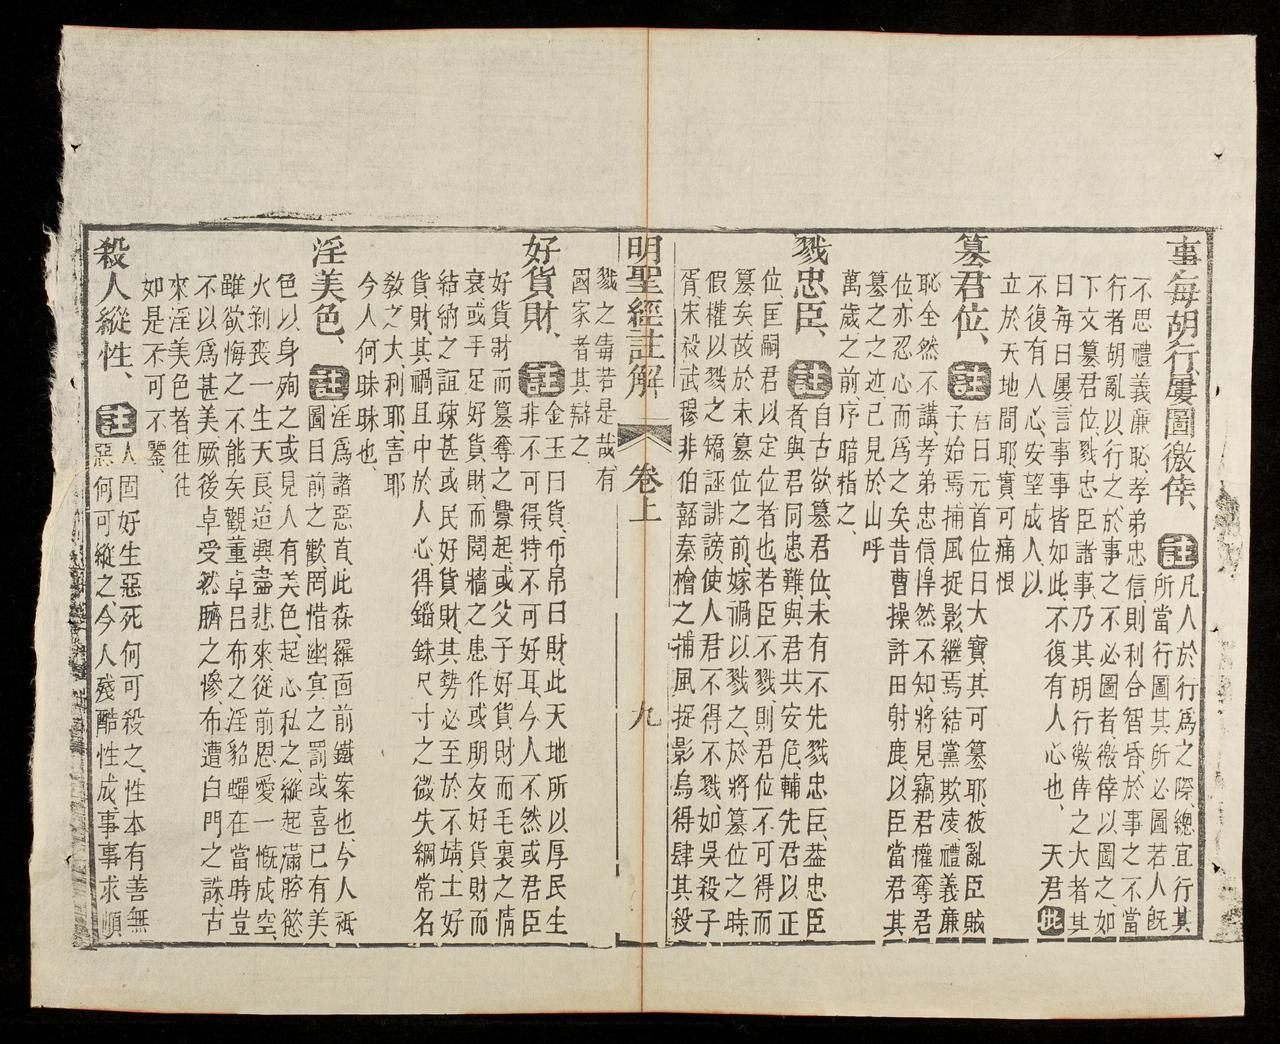 事每胡行屢圖徼倖、註凡人於行爲之際總宜行其
所當行圖其所必圖若人旣
不思禮義廉恥孝弟忠信則利合智昏於事之不當
行者胡亂以行之於事之不必圖者徼倖以圖之如
下文篡君位戮忠臣諸事乃其胡行徼倖之大者其
曰每曰屢言事事皆如此不復有人心也、天君批
不復有人心安望成人以
立於天地間耶實可痛恨
篡君位、註君曰元首位曰大寶其可篡耶彼亂臣賊
子始焉捕風捉影繼焉結黨欺凌禮義廉
恥全然不講孝弟忠信惇然不知將見竊君權奪君
位亦忍心而爲之矣昔曹操許田射鹿以臣當君其
篡之之迹已見於山呼
萬歲之前序暗指之、
戮忠臣、註自古欲篡君位未有不先戮忠臣葢忠臣
者與君同患難與君共安危輔先君以正
位匡嗣君以定位者也若臣不戮則君位不可得而
篡矣故於未篡位之前嫁禍以戮之於將篡位之時
假權以戮之矯誣誹謗使人君不得不戮如吳殺子
胥宋殺武穆非伯嚭秦檜之捕風捉影烏得肆其殺
明聖經註解 卷上 九
戮之毒若是哉有
國家者其辯之、
好貨財、註金玉曰貨布帛曰財此天地所以厚民生
非不可得特不可好耳今人不然或君臣
好貨財而篡奪之釁起或父子好貨財而毛裏之情
衰或手足好貨財而鬩牆之患作或朋友好貨財而
結納之誼疎甚或民好貨財其勢必至於不靖士好
貨財其禍且中於人心得錙銖尺寸之微失綱常名
敎之大利耶害耶
今人何昧昧也、
淫美色、註淫爲諸惡首此森羅面前鐵案也今人祇
圖目前之歡罔惜幽冥之罰或喜已有美
色以身殉之或見人有美色起心私之縱起滿腔慾
火剝喪一生天良迨興盡悲來從前恩愛一慨成空
雖欲悔之不能矣觀董卓呂布之淫貂蟬在當時豈
不以爲甚美厥後卓受然臍之慘布遭白門之誅古
來淫美色者往往
如是不可不鑒
殺人縱性、註人固好生惡死何可殺之性本有善無
惡何可縱之今人殘酷性成事事求順